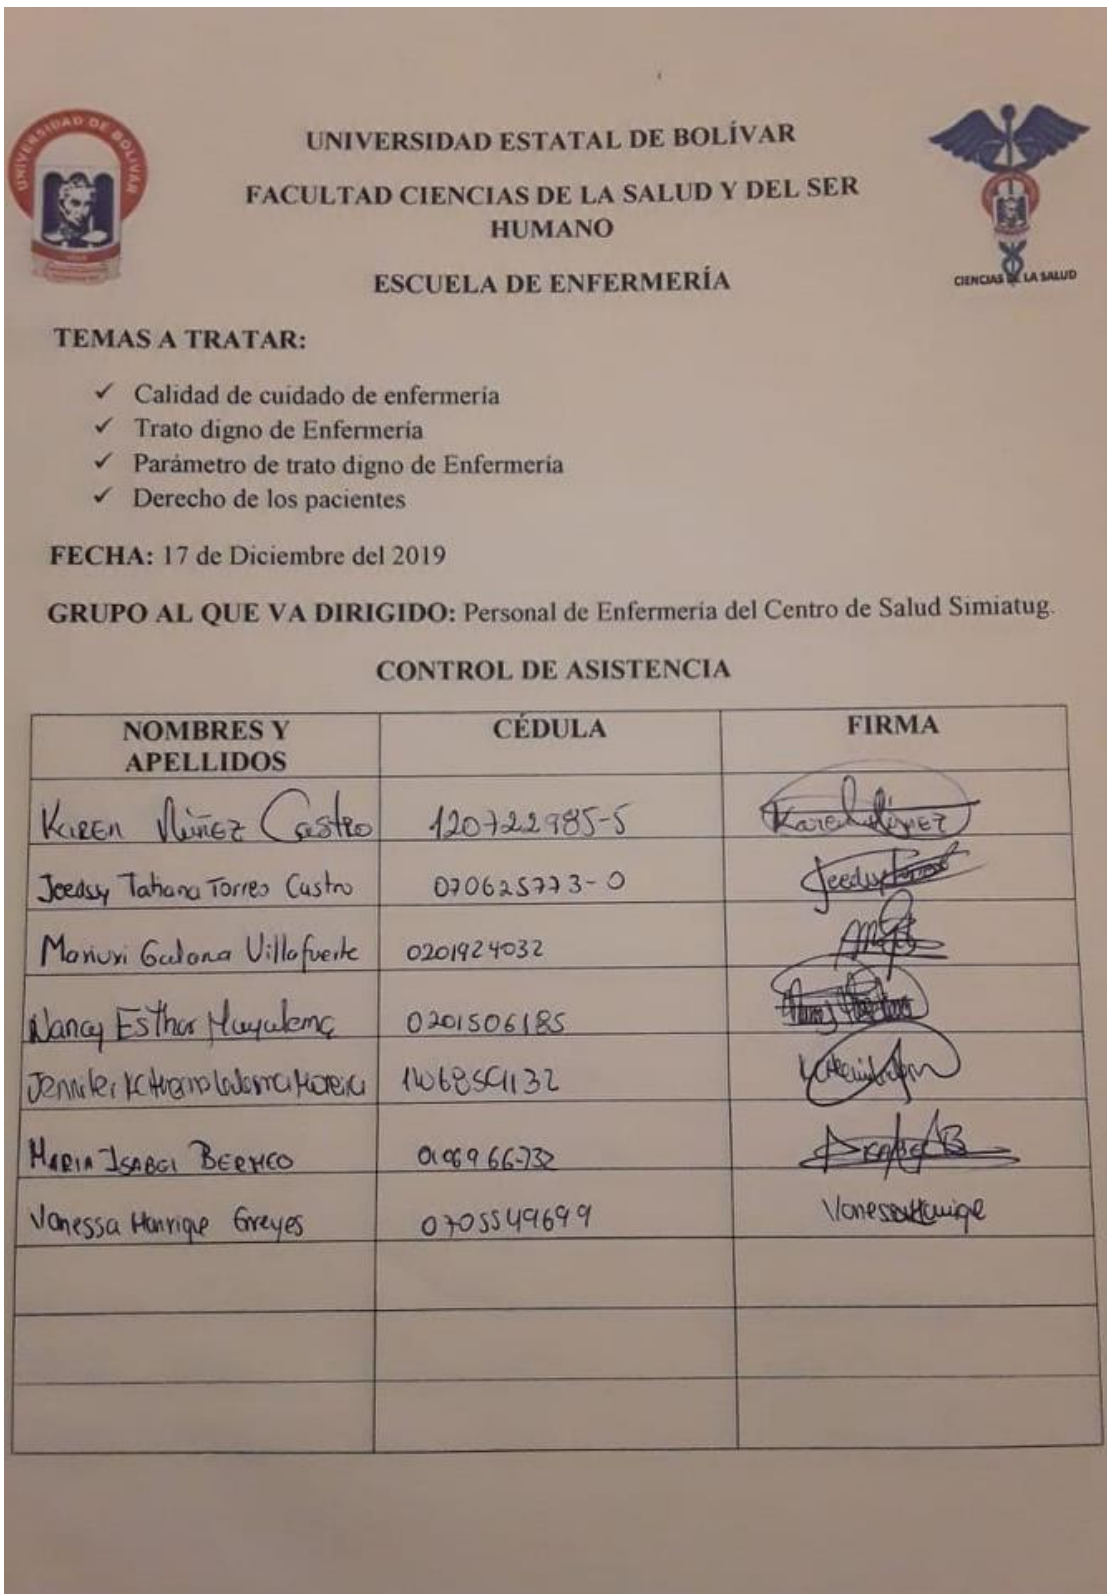 UNIVERSIDAD DE BOLÍVAR
UNIVERSIDAD ESTATAL DE BOLÍVAR
FACULTAD CIENCIAS DE LA SALUD Y DEL SER
HUMANO
ESCUELA DE ENFERMERÍA
CIENCIAS DE LA SALUD
TEMAS A TRATAR:
✓ Calidad de cuidado de enfermería
✓ Trato digno de Enfermería
✓ Parámetro de trato digno de Enfermería
✓ Derecho de los pacientes
FECHA: 17 de Diciembre del 2019
GRUPO AL QUE VA DIRIGIDO: Personal de Enfermería del Centro de Salud Simiatug.
CONTROL DE ASISTENCIA
NOMBRES Y APELLIDOS CÉDULA FIRMA
Karen Núñez Castro 120722985-5 Karen Núñez
Jeedsy Tatiana Torres Castro 070625773-0 Jeedsy
Mariuxi Galana Villafuerte 0201924032
Nancy Esther Mayalema 0201506185
Jennifer
Maria Isabel Bermeo
Vanessa Manrique 0705549699 Vanessa Manrique